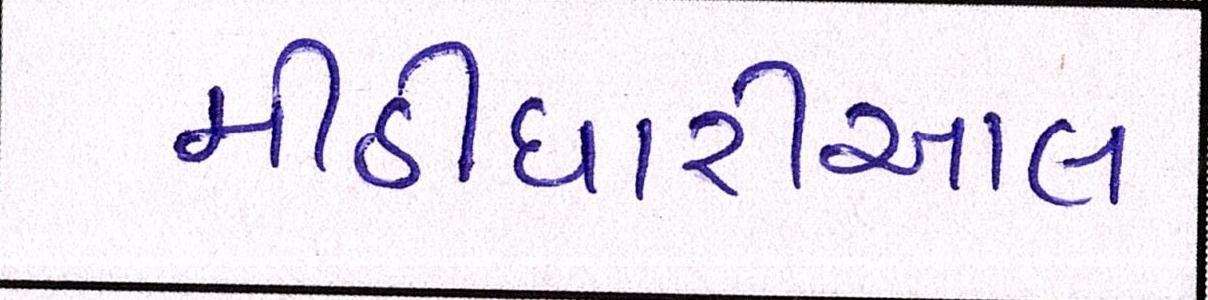 મીઠીધારીઆલ